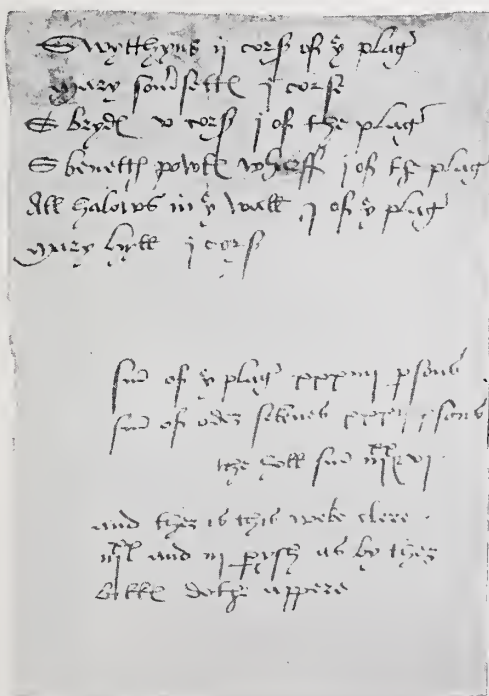 S wytthyns ij cors of yͤ plag
mary som̄settꝭ j corse
S brydꝭ v cors j of the plag
S benettꝭ powlꝭ wharff j of the plag
All halows in yͤ wall j of yͤ plag
mary hyll j cors
sm̄ of yͤ plag xxxiiij ꝑsons
sm̄ of oder seknes xxxij ꝑsons
the holl sm̄ iijˣˣ vj
and ther is this weke clere
iijˣˣ and iij ꝑysh as by this
bille dothe appere